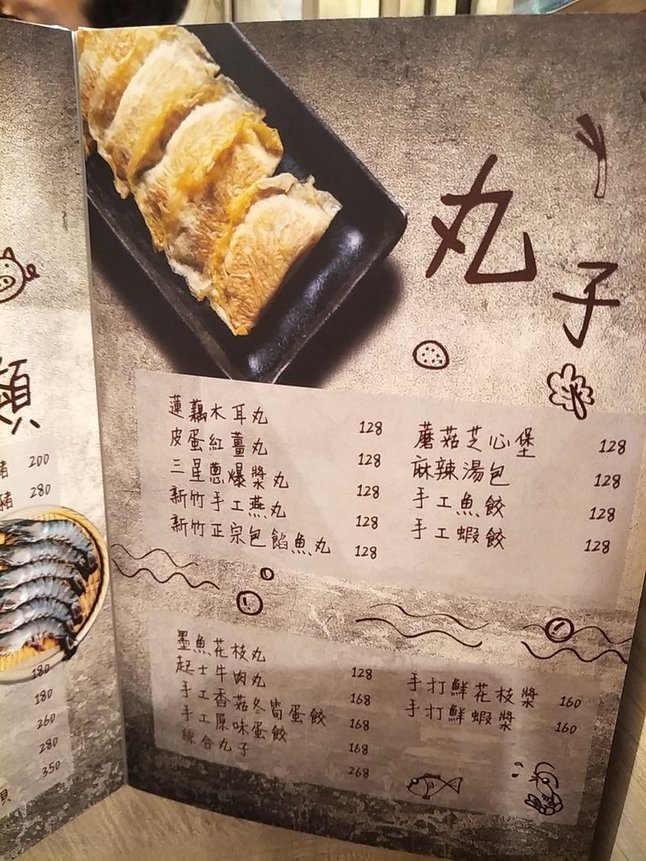 丸子
蓮藕木耳丸 128
皮蛋紅薑丸 128
三星蔥爆漿丸 128
新竹手工燕丸 128
新竹正宗包餡魚丸 128
蘑菇芝心堡 128
麻辣湯包 128
手工魚餃 128
手工蝦餃 128
墨魚花枝丸 128
起士牛肉丸 168
手工香菇冬筍蛋餃 168
手工原味蛋餃 168
綜合丸子 268
手打鮮花枝漿 160
手打鮮蝦漿 160
類
豬 200
豬 280
180
180
260
280
350